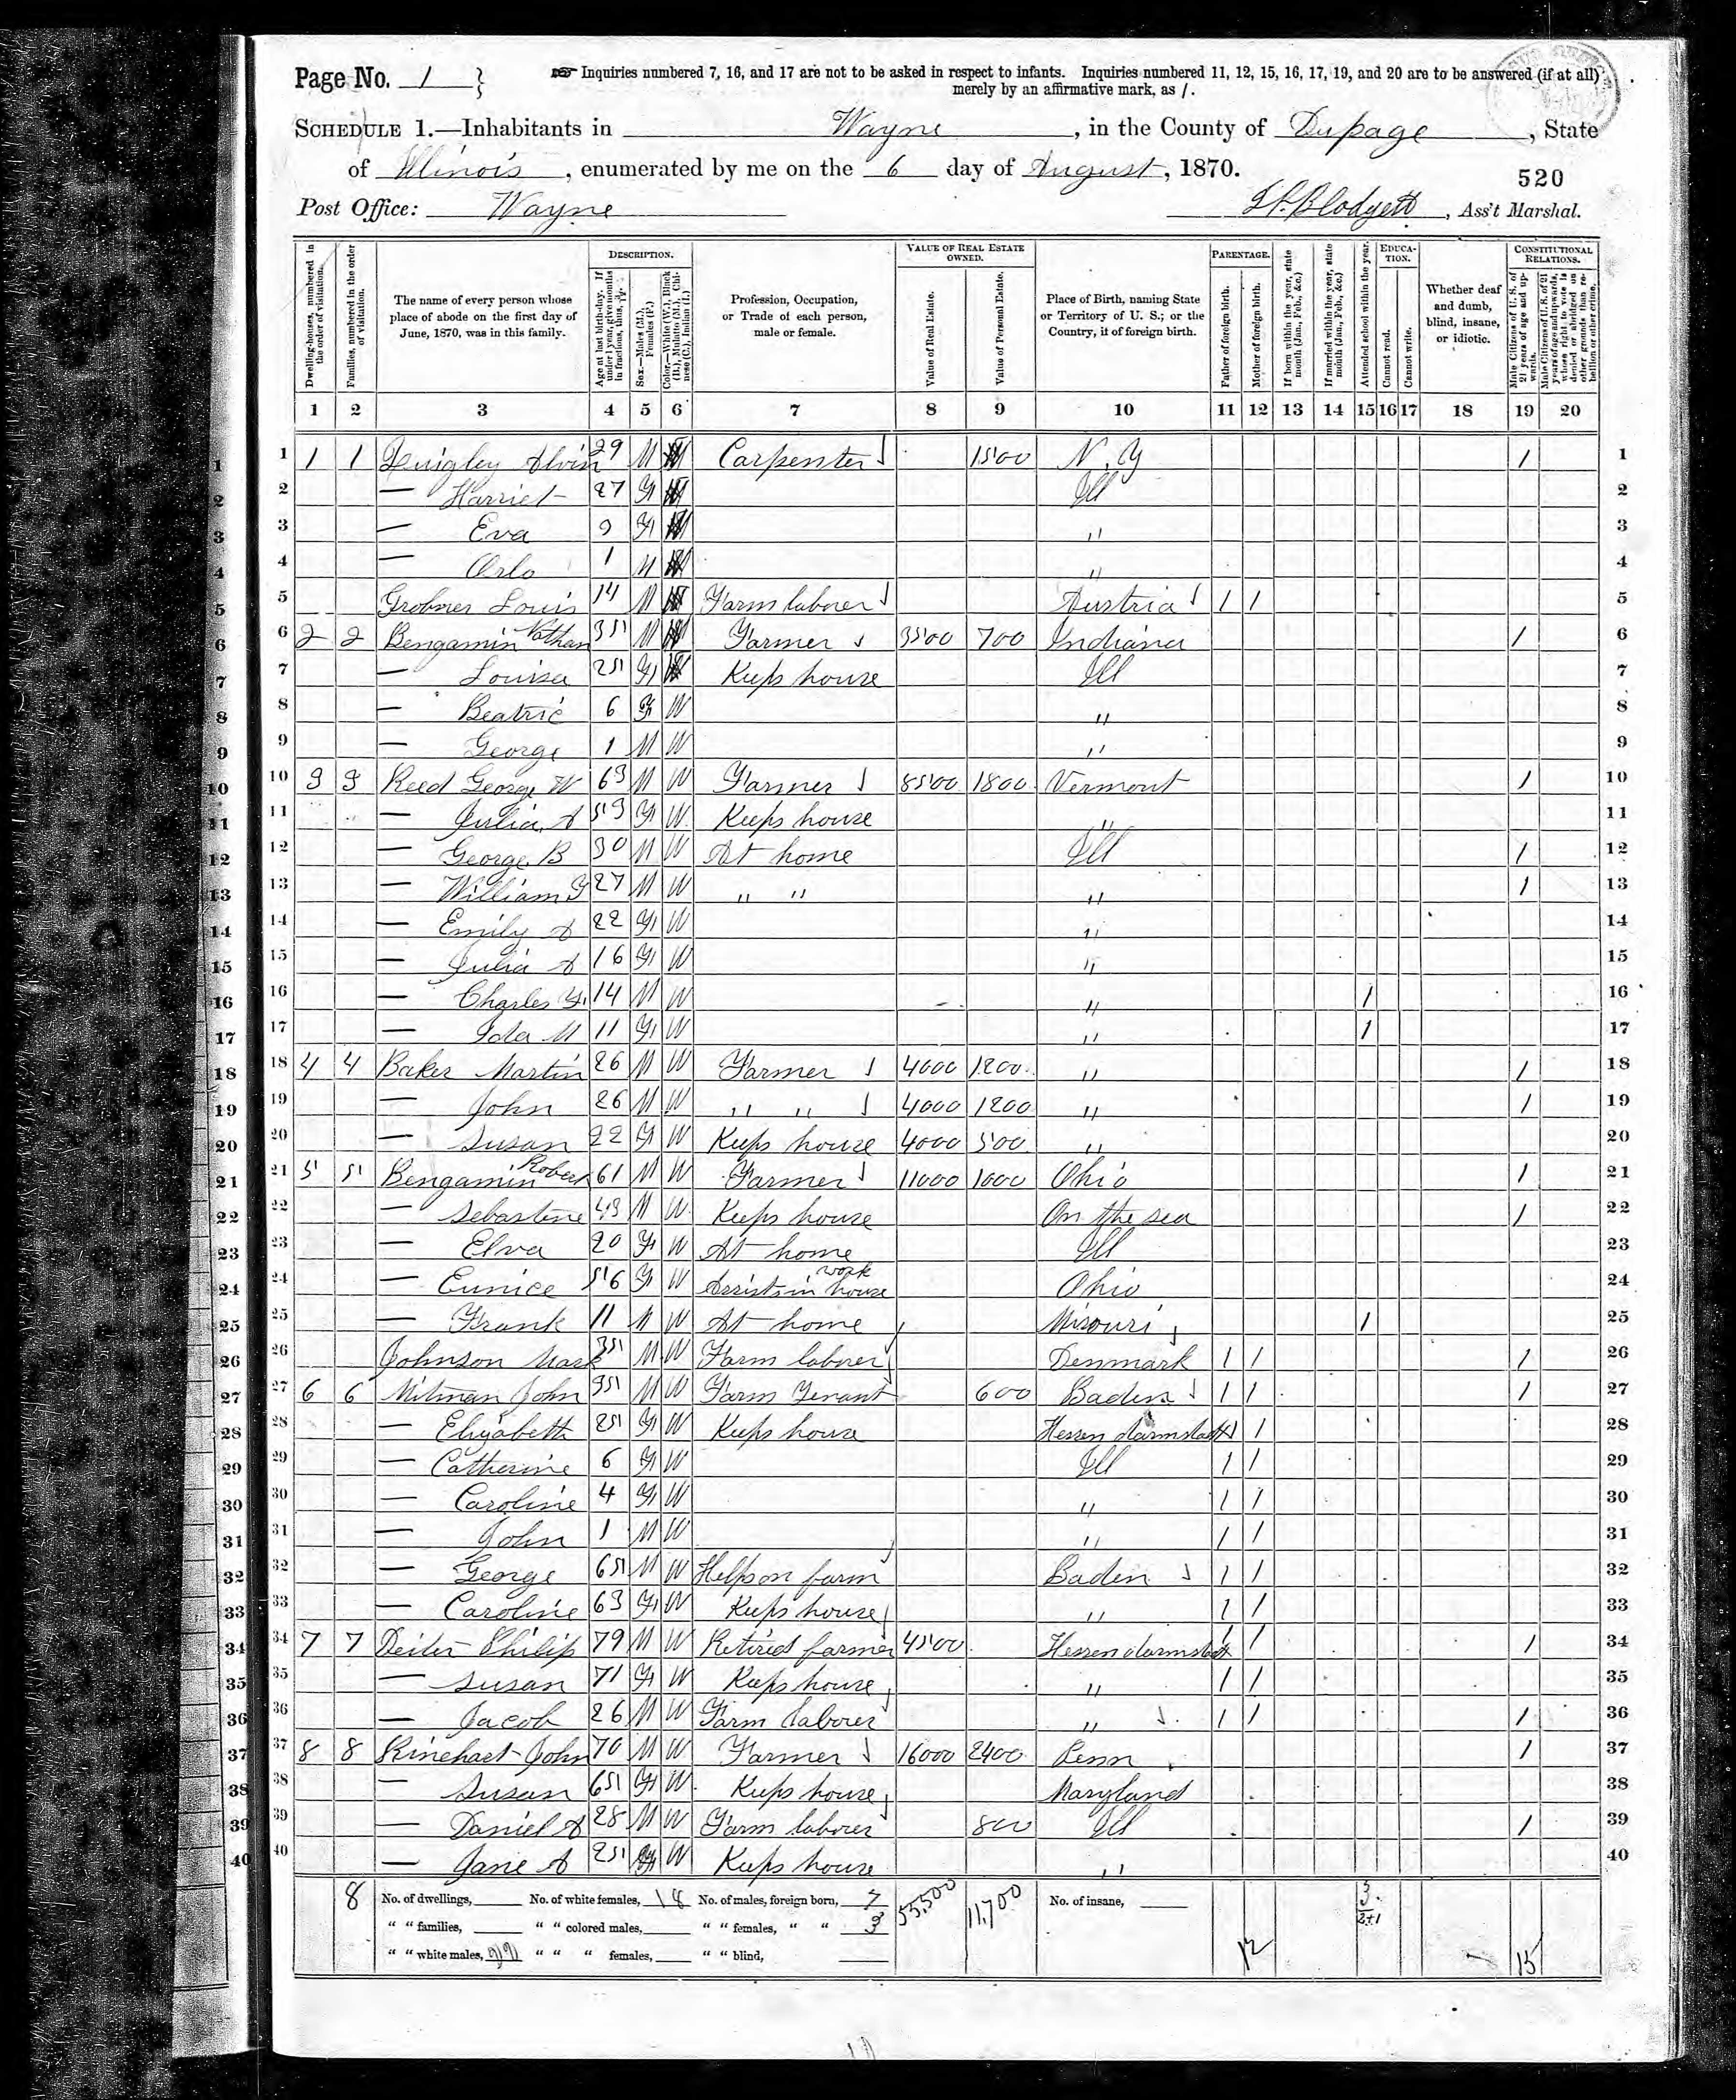 Page No. 1 }
☞ Inquiries numbered 7, 16, and 17 are not to be asked in respect to infants. Inquiries numbered 11, 12, 15, 16, 17, 19, and 20 are to be answered (if at all)
merely by an affirmative mark, as /.
SCHEDULE 1.—Inhabitants in Wayne, in the County of Dupage, State
of Illinois, enumerated by me on the 6 day of August, 1870.
520
Post Office: Wayne Blodgett, Ass't Marshal.
DESCRIPTION. VALUE OF REAL ESTATE OWNED. PARENTAGE. EDUCATION. CONSTITUTIONAL RELATIONS.
Dwelling-houses, numbered in the order of visitation. Families, numbered in the order of visitation. The name of every person whose place of abode on the first day of June, 1870, was in this family. Age at last birth-day. If under 1 year, give months in fractions, thus, Sex.—Males (M.), Females (F.) Color.—White (W.), Black (B.), Mulatto (M.), Chinese (C.), Indian (I.) Profession, Occupation, or Trade of each person, male or female. Value of Real Estate. Value of Personal Estate. Place of Birth, naming State or Territory of U. S.; or the Country, if of foreign birth. Father of foreign birth. Mother of foreign birth. If born within the year, state month (Jan., Feb., &c.) If married within the year, state month (Jan., Feb., &c.) Attended school within the year. Cannot read. Cannot write. Whether deaf and dumb, blind, insane, or idiotic. Male Citizens of U. S. of 21 years of age and upwards. Male Citizens of U. S. of 21 years of age and upwards, whose right to vote is denied or abridged on other grounds than rebellion or other crime.
1 2 3 4 5 6 7 8 9 10 11 12 13 14 15 16 17 18 19 20
1 1 1 Quigley Alvin 29 M W Carpenter 1500 N.Y / 1
2 — Harriet 27 F W Ill 2
3 — Eva 9 F W " 3
4 — Orlo 1 M W " 4
5 Grobner Louis 14 M W Farm laborer Austria / / 5
6 2 2 Bengamin Nathan 35 M W Farmer 3500 700 Indiana / 6
7 — Louisa 25 F W Keeps house Ill 7
8 — Beatric 6 F W " 8
9 — George 1 M W " 9
10 3 3 Reed George W 63 M W Farmer 8500 1800 Vermont / 10
11 — Julia A 53 F W Keeps house " 11
12 — George B 30 M W At home Ill / 12
13 — William F 27 M W " " " / 13
14 — Emily A 22 F W " 14
15 — Julia A 16 F W " 15
16 — Charles F. 14 M W " / 16
17 — Ida M 11 F W " / 17
18 4 4 Baker Martin 26 M W Farmer 4000 1200 " / 18
19 — John 26 M W " " 4000 1200 " / 19
20 — Susan 22 F W Keeps house 4000 500 " 20
21 5 5 Bengamin Robert 61 M W Farmer 11000 1000 Ohio / 21
22 — Sebastine 43 M W Keeps house On the sea / 22
23 — Elva 20 F W At home Ill 23
24 — Eunice 56 F W Assists in house work Ohio 24
25 — Frank 11 M W At home Misouri / 25
26 Johnson Mark 35 M W Farm laborer Denmark / / / 26
27 6 6 Mitman John 35 M W Farm Tenant 600 Baden / / / 27
28 — Elizabeth 25 F W Keeps house Hessen darmstadt / / 28
29 — Catherine 6 F W Ill / / 29
30 — Caroline 4 F W " / / 30
31 — John 1 M W " / / 31
32 — George 65 M W Helps on farm Baden / / 32
33 — Caroline 63 F W Keeps house " / / 33
34 7 7 Deiter Philip 79 M W Retired farmer 4500 Hessen darmstadt / / / 34
35 — Susan 71 F W Keeps house " / / 35
36 — Jacob 26 M W Farm laborer " / / / 36
37 8 8 Rinehart John 70 M W Farmer 16000 2400 Penn / 37
38 — Susan 65 F W Keeps house Maryland 38
39 — Daniel A 28 M W Farm laborer 800 Ill / 39
40 — Jane A 25 F W Keeps house " 40
8 No. of dwellings, No. of white females, 18 No. of males, foreign born, 7 55,500 11,700 No. of insane, 3
" " families, " " colored males, " " females, " " 3 2+1
" " white males, 22 " " " females, " " blind, 12 15